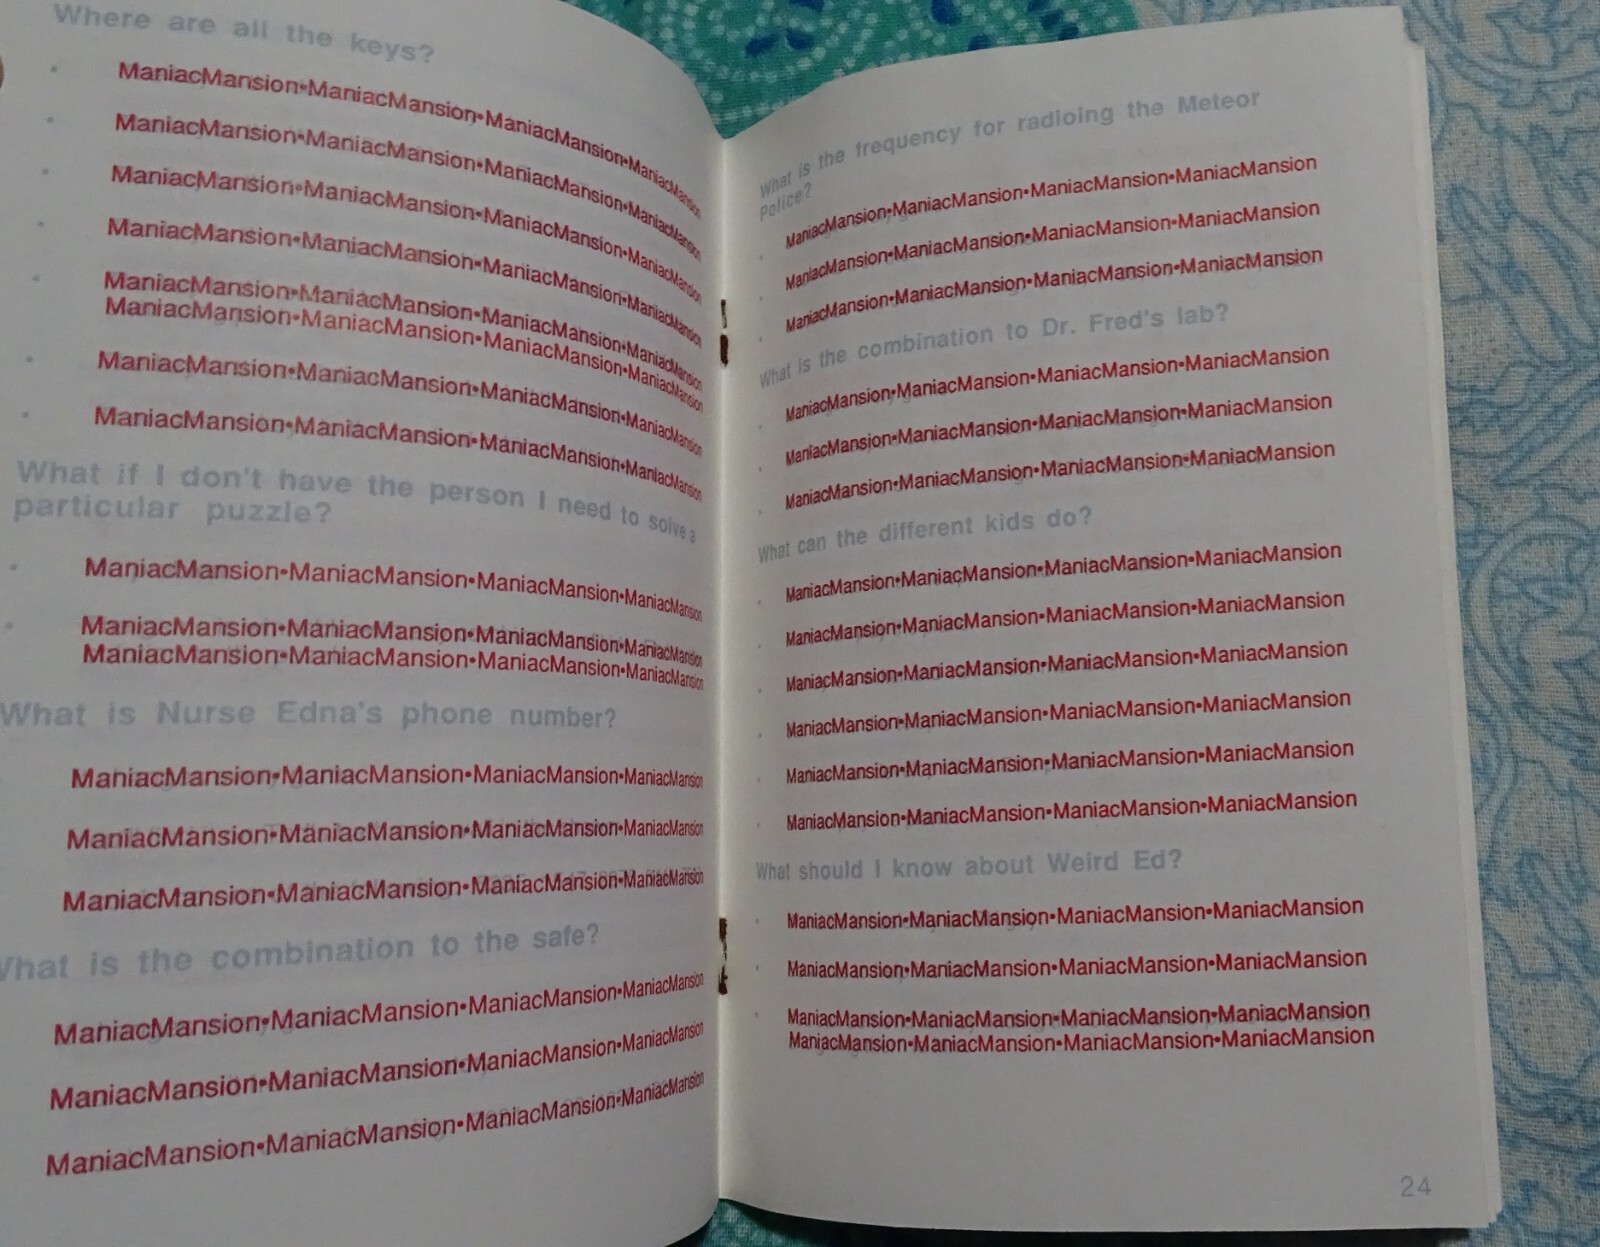 Where are all the keys?
ManiacMansion•ManiacMansion•ManiacMansion•ManiacMansion
ManiacMansion•ManiacMansion•ManiacMansion•ManiacMansion
ManiacMansion•ManiacMansion•ManiacMansion•ManiacMansion
ManiacMansion•ManiacMansion•ManiacMansion•ManiacMansion
ManiacMansion•ManiacMansion•ManiacMansion•ManiacMansion
ManiacMansion•ManiacMansion•ManiacMansion•ManiacMansion
ManiacMansion•ManiacMansion•ManiacMansion•ManiacMansion
ManiacMansion•ManiacMansion•ManiacMansion•ManiacMansion
What if I don't have the person I need to solve a
particular puzzle?
ManiacMansion•ManiacMansion•ManiacMansion•ManiacMansion
ManiacMansion•ManiacMansion•ManiacMansion•ManiacMansion
ManiacMansion•ManiacMansion•ManiacMansion•ManiacMansion
What is Nurse Edna's phone number?
ManiacMansion•ManiacMansion•ManiacMansion•ManiacMansion
ManiacMansion•ManiacMansion•ManiacMansion•ManiacMansion
ManiacMansion•ManiacMansion•ManiacMansion•ManiacMansion
What is the combination to the safe?
ManiacMansion•ManiacMansion•ManiacMansion•ManiacMansion
ManiacMansion•ManiacMansion•ManiacMansion•ManiacMansion
ManiacMansion•ManiacMansion•ManiacMansion•ManiacMansion
What is the frequency for radioing the Meteor
Police?
ManiacMansion•ManiacMansion•ManiacMansion•ManiacMansion
ManiacMansion•ManiacMansion•ManiacMansion•ManiacMansion
ManiacMansion•ManiacMansion•ManiacMansion•ManiacMansion
What is the combination to Dr. Fred's lab?
ManiacMansion•ManiacMansion•ManiacMansion•ManiacMansion
ManiacMansion•ManiacMansion•ManiacMansion•ManiacMansion
ManiacMansion•ManiacMansion•ManiacMansion•ManiacMansion
What can the different kids do?
ManiacMansion•ManiacMansion•ManiacMansion•ManiacMansion
ManiacMansion•ManiacMansion•ManiacMansion•ManiacMansion
ManiacMansion•ManiacMansion•ManiacMansion•ManiacMansion
ManiacMansion•ManiacMansion•ManiacMansion•ManiacMansion
ManiacMansion•ManiacMansion•ManiacMansion•ManiacMansion
ManiacMansion•ManiacMansion•ManiacMansion•ManiacMansion
What should I know about Weird Ed?
ManiacMansion•ManiacMansion•ManiacMansion•ManiacMansion
ManiacMansion•ManiacMansion•ManiacMansion•ManiacMansion
ManiacMansion•ManiacMansion•ManiacMansion•ManiacMansion
ManiacMansion•ManiacMansion•ManiacMansion•ManiacMansion
24